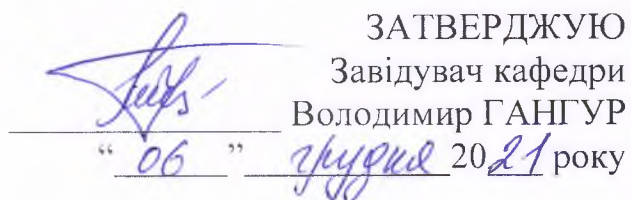 ЗАТВЕРДЖУЮ
Завідувач кафедри
Володимир ГАНГУР
“ 06 ” грудня 2021 року